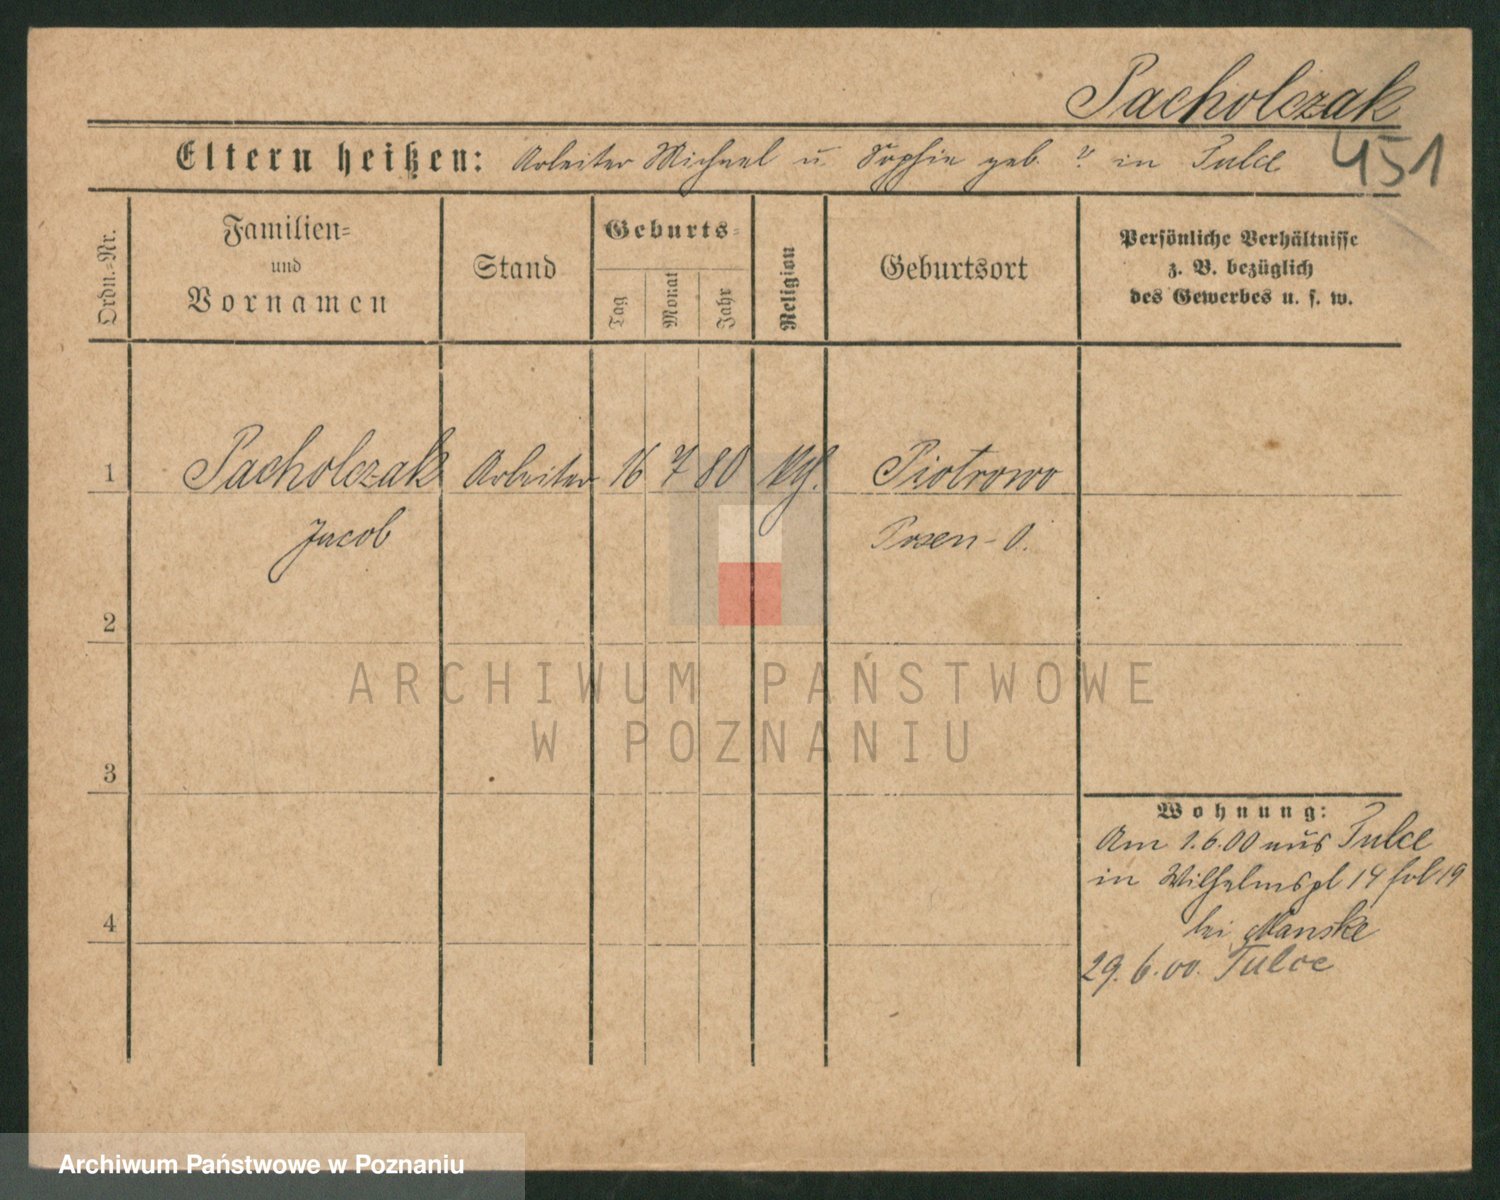 Pacholczak
Eltern heißen: Arbeiter Michael u. Sophie geb. ? in Tulce 451
Ordn.-Nr.
Familien-
und
Vornamen
Stand
Geburts-
Tag
Monat
Jahr
Religion
Geburtsort
Persönliche Verhältnisse
z. B. bezüglich
des Gewerbes u. s. w.
1 Pacholczak Arbeiter 16 7 80 Piotrowo
Jacob Posen-O.
2
ARCHIWUM PAŃSTWOWE
W POZNANIU
3
Wohnung:
Am 1.6.00 aus Tulce
in Wilhelmspl 14 19
4
bei Manske
29.6.00. Tulce
Archiwum Państwowe w Poznaniu